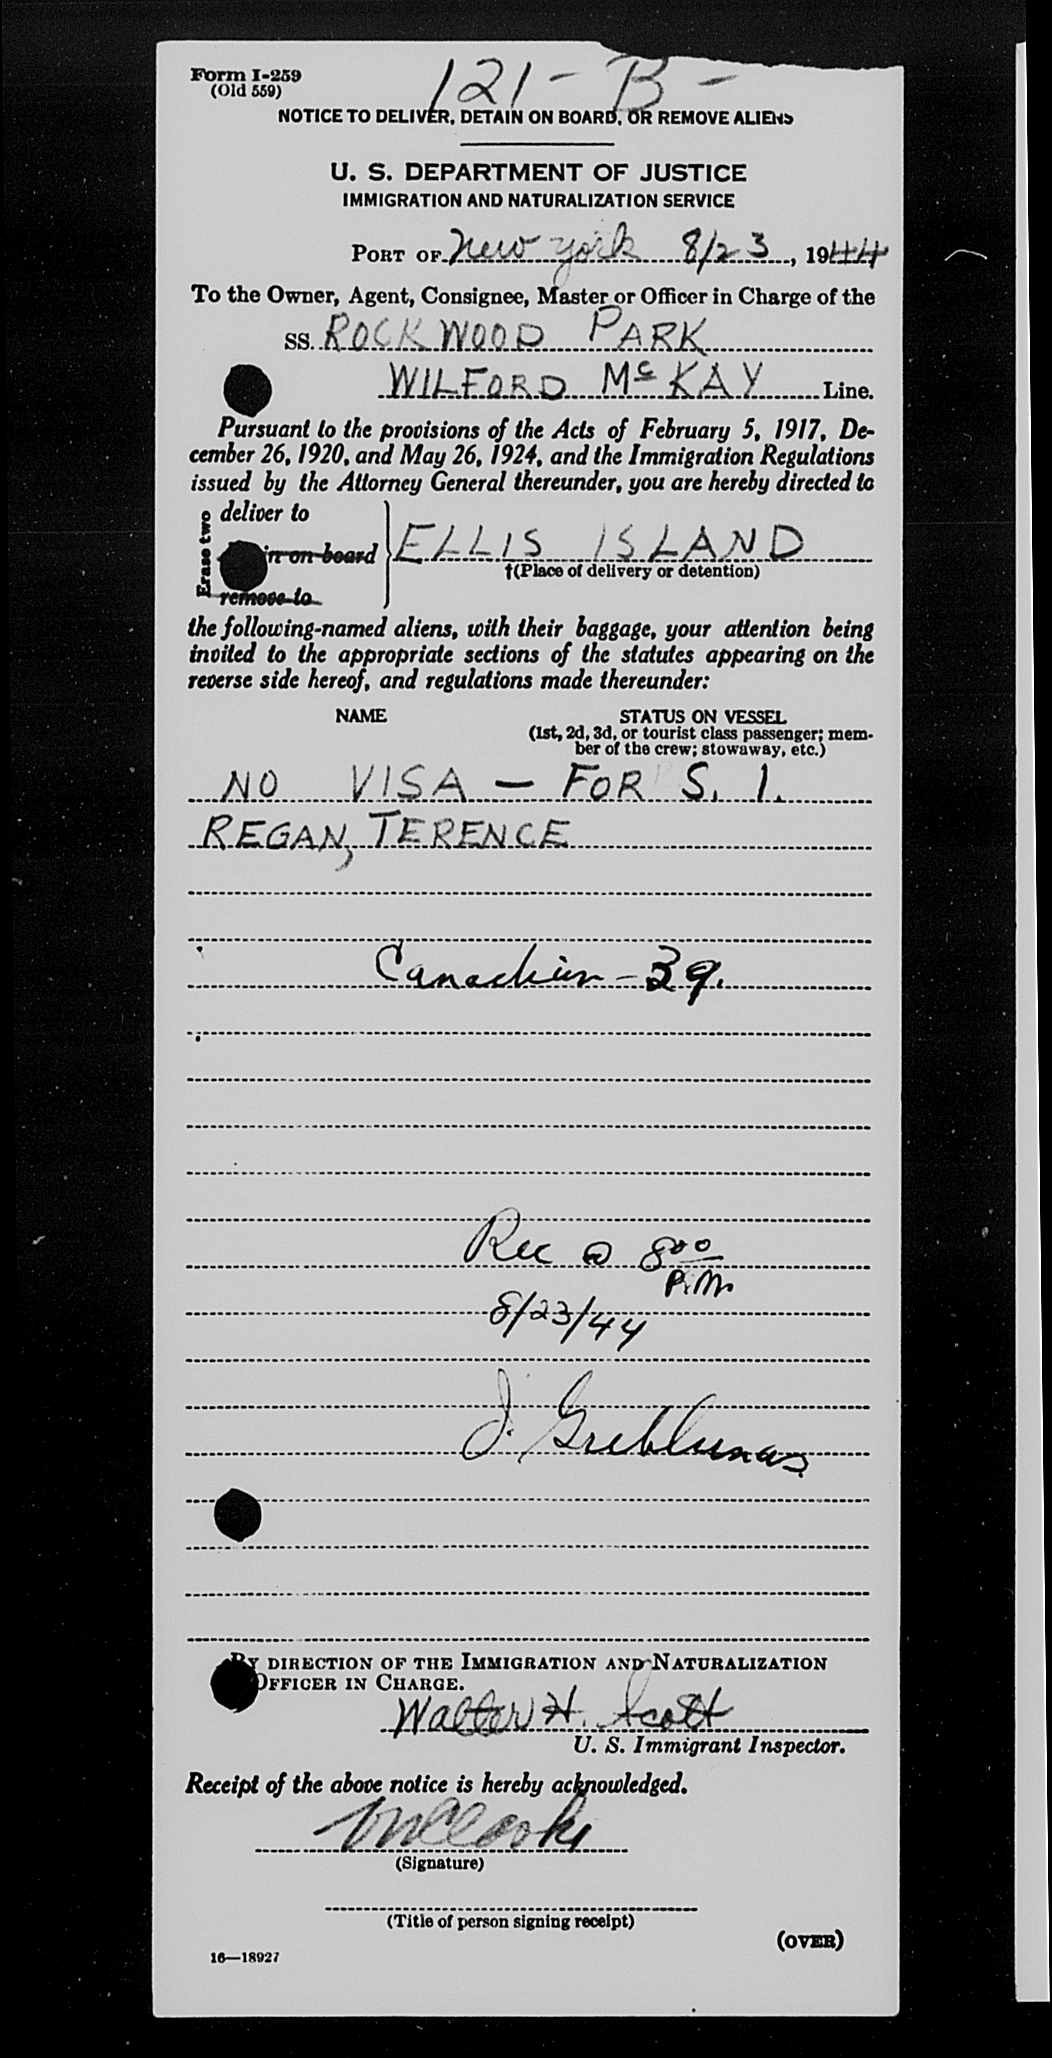 Form I-259
(Old 559)
121 - B -
NOTICE TO DELIVER, DETAIN ON BOARD, OR REMOVE ALIENS
U. S. DEPARTMENT OF JUSTICE
IMMIGRATION AND NATURALIZATION SERVICE
PORT OF New York 8/23, 1944
To the Owner, Agent, Consignee, Master or Officer in Charge of the
SS. ROCKWOOD PARK
WILFORD McKAY Line.
Pursuant to the provisions of the Acts of February 5, 1917, De-
cember 26, 1920, and May 26, 1924, and the Immigration Regulations
issued by the Attorney General thereunder, you are hereby directed to
Erase two
deliver to
in on board
remove to
ELLIS ISLAND
†(Place of delivery or detention)
the following-named aliens, with their baggage, your attention being
invited to the appropriate sections of the statutes appearing on the
reverse side hereof, and regulations made thereunder:
NAME STATUS ON VESSEL
(1st, 2d, 3d, or tourist class passenger; mem-
ber of the crew; stowaway, etc.)
NO VISA — FOR S. I.
REGAN, TERENCE
Canadian - 39.
Rec @ 8 00
P.M.
8/23/44
J. Greblunas
BY DIRECTION OF THE IMMIGRATION AND NATURALIZATION
OFFICER IN CHARGE.
Walter H. Scott
U. S. Immigrant Inspector.
Receipt of the above notice is hereby acknowledged.
(Signature)
(Title of person signing receipt)
(OVER)
16—18927